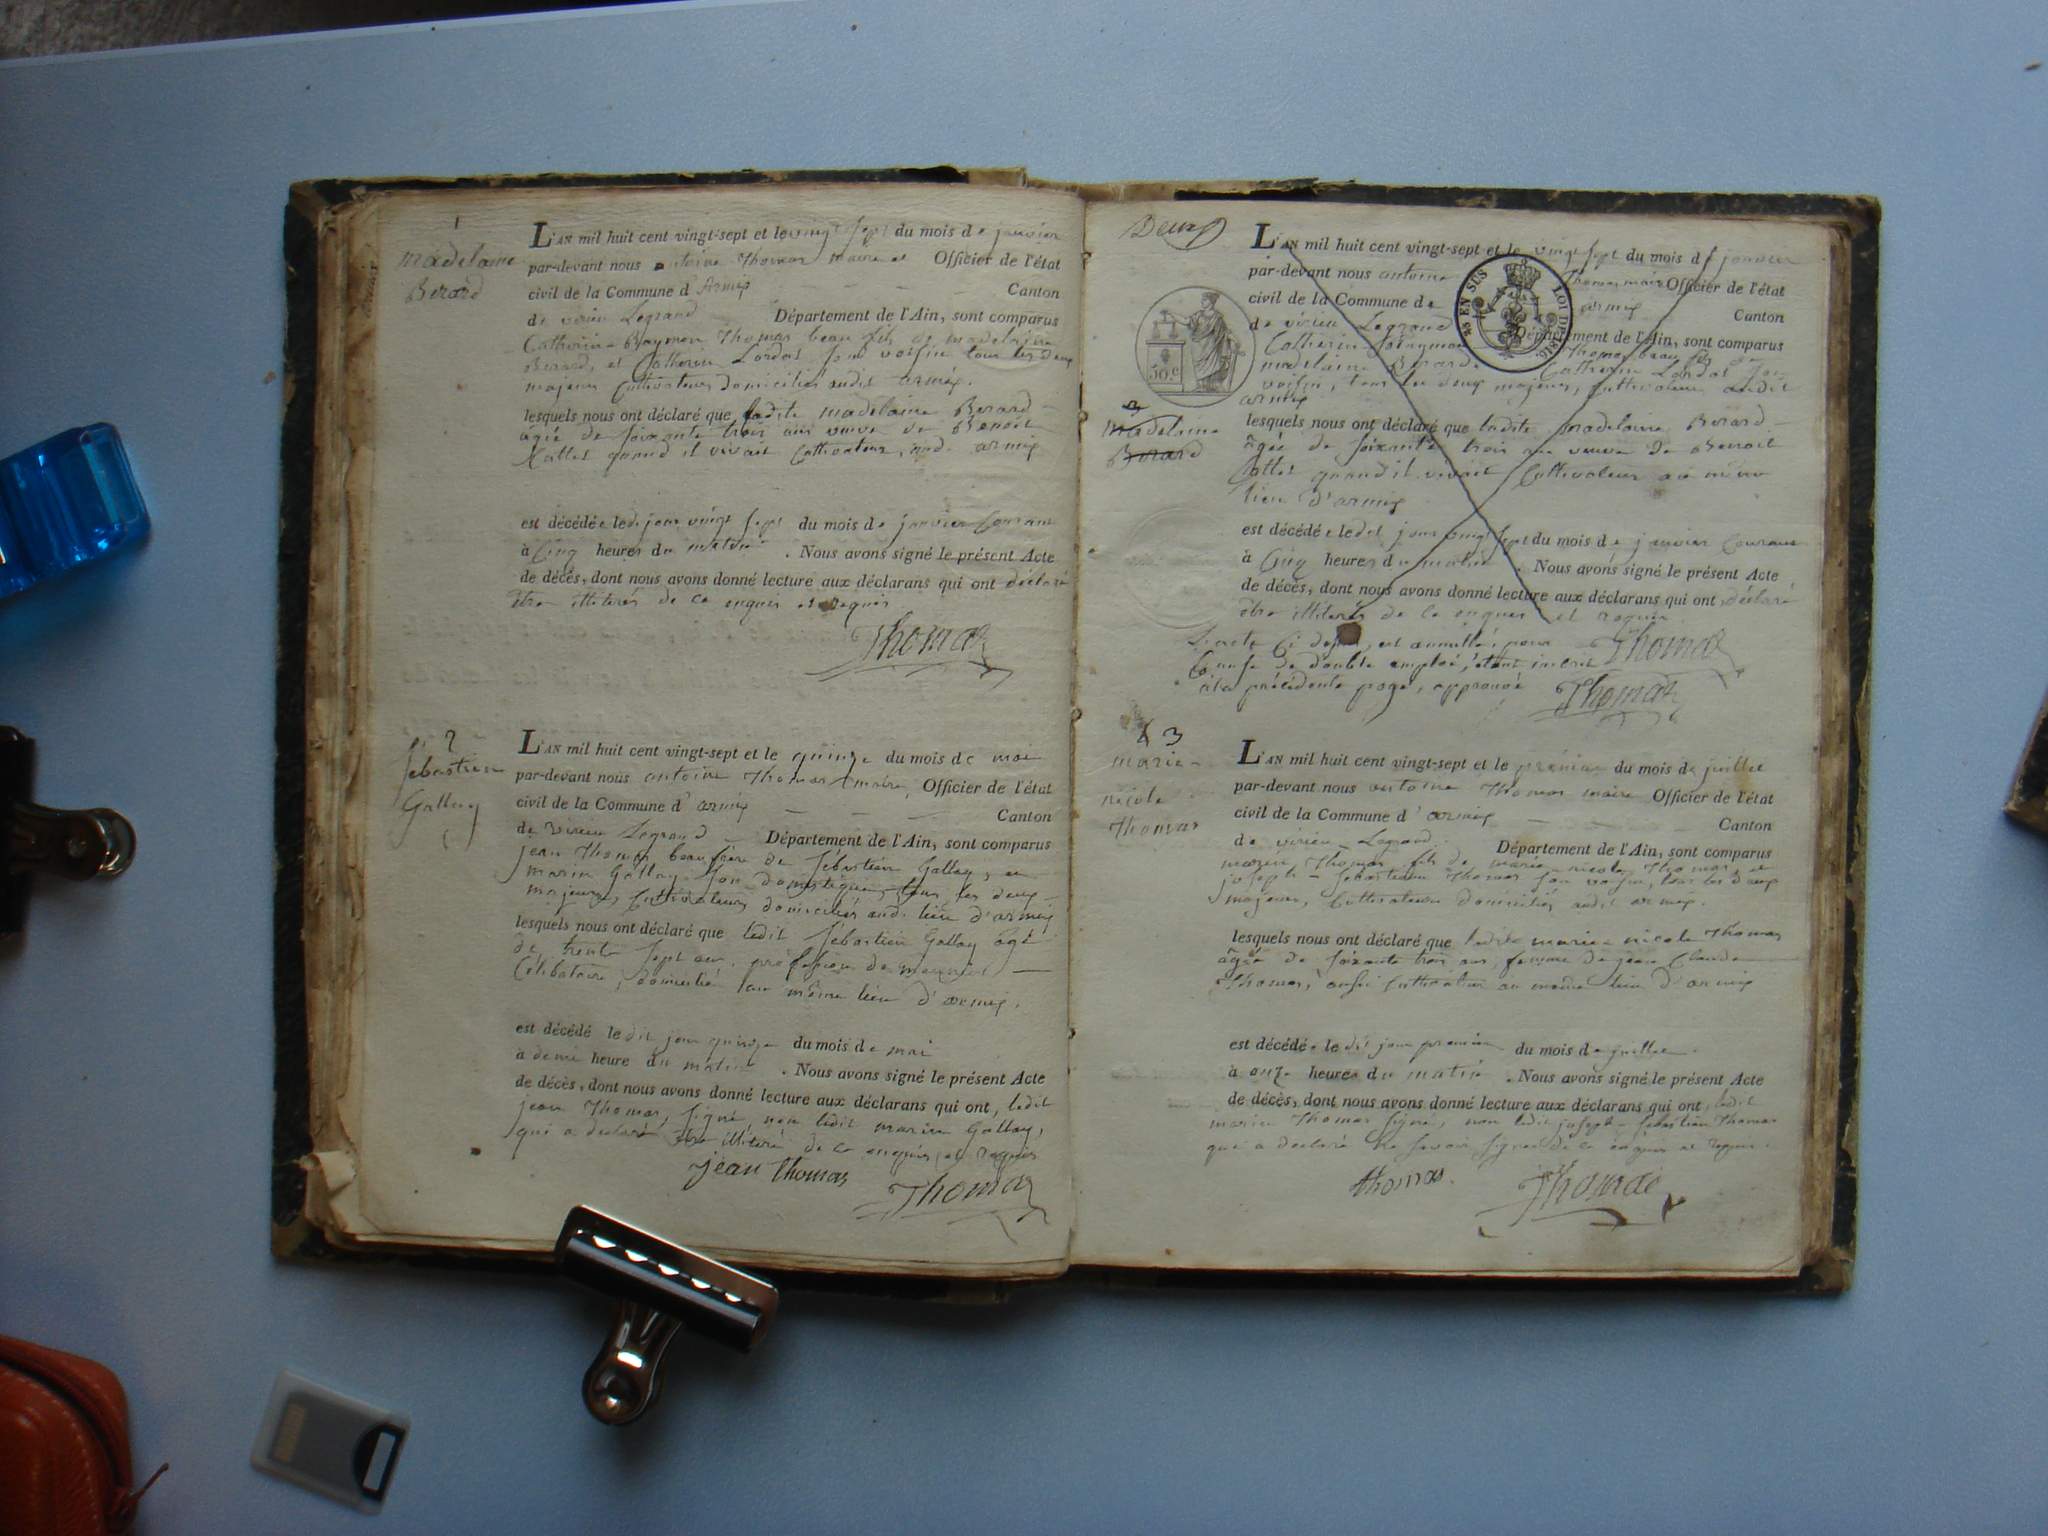 1
madelaine
Berard
L'AN mil huit cent vingt-sept et le vingt sept du mois de janvier
par-devant nous antoine Thomas maire et Officier de l'état
civil de la Commune d Armix Canton
de virieu Legrand Département de l'Ain, sont comparus
Catherin Thomas beau fils de madelaine
Berard, et Catherin Lordas son voisin tous les deux
majeurs Cultivateurs domiciliés audit armix.
lesquels nous ont déclaré que ladite madelaine Berard
agée de soixante trois ans veuve de Benoit
quand il vivait Cultivateur, armix
est décédée ledit jour vingt sept du mois de janvier Courant
à Cinq heures du matin . Nous avons signé le présent Acte
de décès, dont nous avons donné lecture aux déclarans qui ont déclaré
être illiterés de ce enquis et requis
Thomas
2
Sebastien
Gallay
L'AN mil huit cent vingt-sept et le quinze du mois de mai
par-devant nous antoine Thomas maire, Officier de l'état
civil de la Commune d'armix Canton
de virieu Legrand Département de l'Ain, sont comparus
jean Thomas beau frère de Sébastien Gallay, et
marin Gallay son domestique, tous les deux
majeurs, Cultivateurs domiciliés audit lieu d'armix
lesquels nous ont déclaré que ledit Sébastien Gallay agé
de trente sept ans, profession de meunier
Célibataire, domicilié au même lieu d'armix.
est décédé ledit jour quinze du mois de mai
à demi heure du matin . Nous avons signé le présent Acte
de décès, dont nous avons donné lecture aux déclarans qui ont, ledit
jean Thomas, signé, non ledit marin Gallay,
qui a déclaré être illiteré de ce enquis et requis
jean thomas
Thomas
Deux
L'AN mil huit cent vingt-sept et le vingt sept du mois de janvier
par-devant nous antoine Thomas maire Officier de l'état
civil de la Commune de armix Canton
de virieu Legrand Département de l'Ain, sont comparus
Catherin Thomas beau fils de
madelaine Berard Catherin Lordas son
voisin, tous les deux majeurs, Cultivateurs audit
armix
lesquels nous ont déclaré que ladite madelaine Berard
âgée de soixante trois ans veuve de Benoit
quand il vivait Cultivateur au même
lieu d'armix
est décédée ledit jour vingt sept du mois de janvier Courant
à Cinq heures du matin . Nous avons signé le présent Acte
de décès, dont nous avons donné lecture aux déclarans qui ont déclaré
être illiterés de ce enquis et requis
L'acte Ci dessus, est annullé, pour Thomas
Cause de double emploi, étant inscrit
à la précédente page, approuvé Thomas
45 EN SUS LOI DE 1816.
50.c
3
madelaine
Berard
3
marie
nicole
Thomas
L'AN mil huit cent vingt-sept et le premier du mois de juillet
par-devant nous antoine Thomas maire Officier de l'état
civil de la Commune d'armix Canton
de virieu Legrand. Département de l'Ain, sont comparus
marin Thomas fils de marie nicole Thomas, et
joseph Sébastien Thomas son voisin, tous les deux
majeurs, Cultivateurs domiciliés audit armix.
lesquels nous ont déclaré que ladite marie nicole Thomas
âgée de soixante trois ans, femme de jean Claude
Thomas, aussi Cultivateur au même lieu d'armix
est décédée ledit jour premier du mois de juillet.
à onze heures du matin . Nous avons signé le présent Acte
de décès, dont nous avons donné lecture aux déclarans qui ont, ledit
marin Thomas signé, non ledit joseph Sébastien Thomas
qui a déclaré ne savoir signer de ce enquis et requis.
thomas.
Thomas